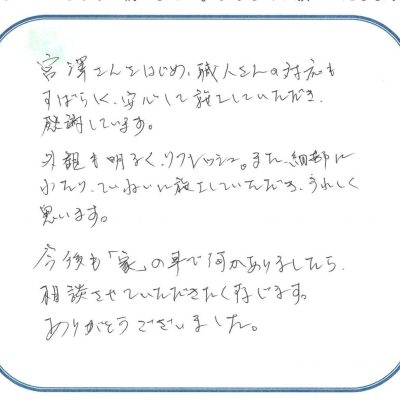 宮澤さんをはじめ、職人さんの対応も
すばらしく、安心して施工していただき、
感謝しています。
外観も明るく、リフレッシュ。また、細部に
わたり、ていねいに施工していただき、うれしく
思います。
今後も「家」の事で何かありましたら、
相談させていただきたく存じます。
ありがとうございました。